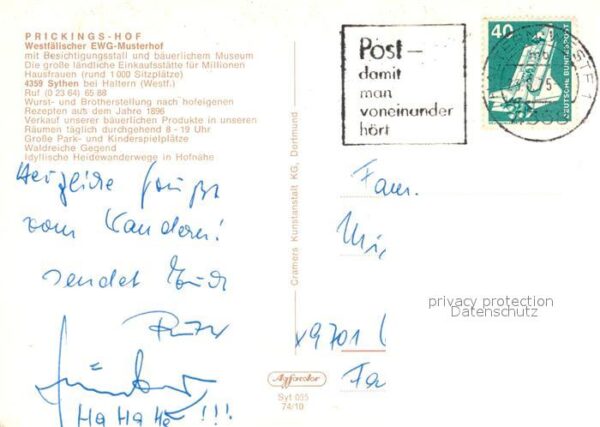 PRICKINGS-HOF
Westfälischer EWG-Musterhof
mit Besichtigungsstall und bäuerlichem Museum
Die große ländliche Einkaufsstätte für Millionen
Hausfrauen (rund 1 000 Sitzplätze)
4359 Sythen bei Haltern (Westf.)
Ruf (0 23 64) 65 88
Wurst- und Brotherstellung nach hofeigenen
Rezepten aus dem Jahre 1896
Verkauf unserer bäuerlichen Produkte in unseren
Räumen täglich durchgehend 8 - 19 Uhr
Große Park- und Kinderspielplätze
Waldreiche Gegend
Idyllische Heidewanderwege in Hofnähe
Herzliche Grüße
vom Wandern!
sendet Euch
Günter
Ha Ha Ha !!!
Cramers Kunstanstalt KG, Dortmund
Agfacolor
Syt 035
74/10
Post –
damit
man
voneinander
hört
40
DEUTSCHE BUNDESPOST
Fam.
x9701
Fa
privacy protection
Datenschutz